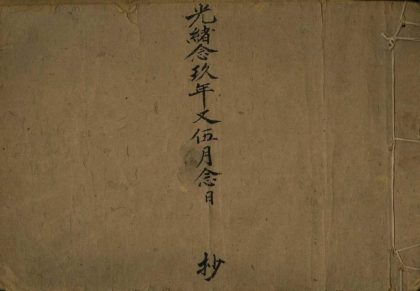 光緒念玖年又伍月念日 抄